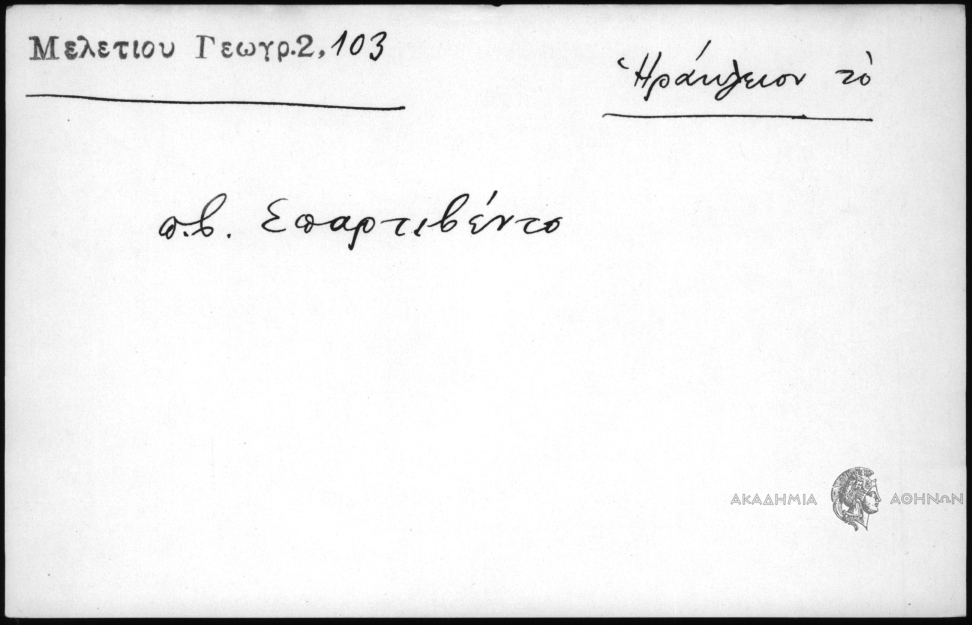 Μελετίου Γεωγρ.2,103
Ἡράκλειον τὸ
π.β. Σπαρτιβέντο
ΑΚΑΔΗΜΙΑ ΑΘΗΝΩΝ